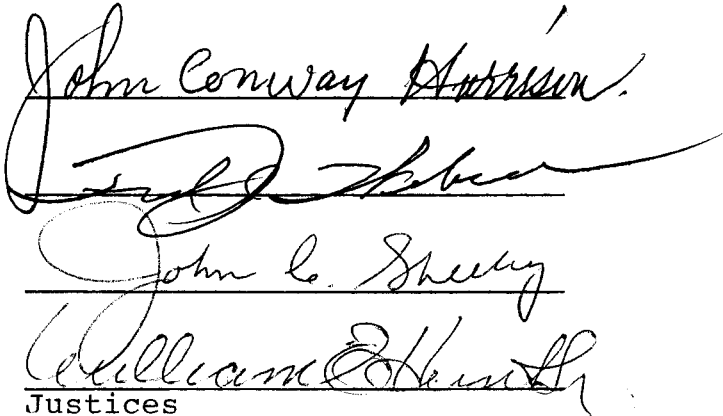 John Conway Harrison.
John C. Sheehy
William E. Hunt Sr.
Justices